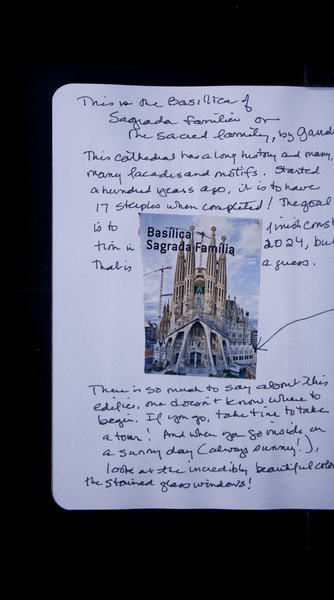 This is the Basilica of
Sagrada Familia or
The Sacred Family, by Gaudi
This cathedral has a long history and many,
many facades and motifs. Started
a hundred years ago, it is to have
17 steeples when completed! The goal
is to finish const
tion in 2024, but
That is a guess.
Basílica
Sagrada Família
There is so much to say about this
edifice, one doesn't know where to
begin. If you go, take time to take
a tour! And when you go inside, on
a sunny day (always sunny!),
look at the incredibly beautiful color
the stained glass windows!